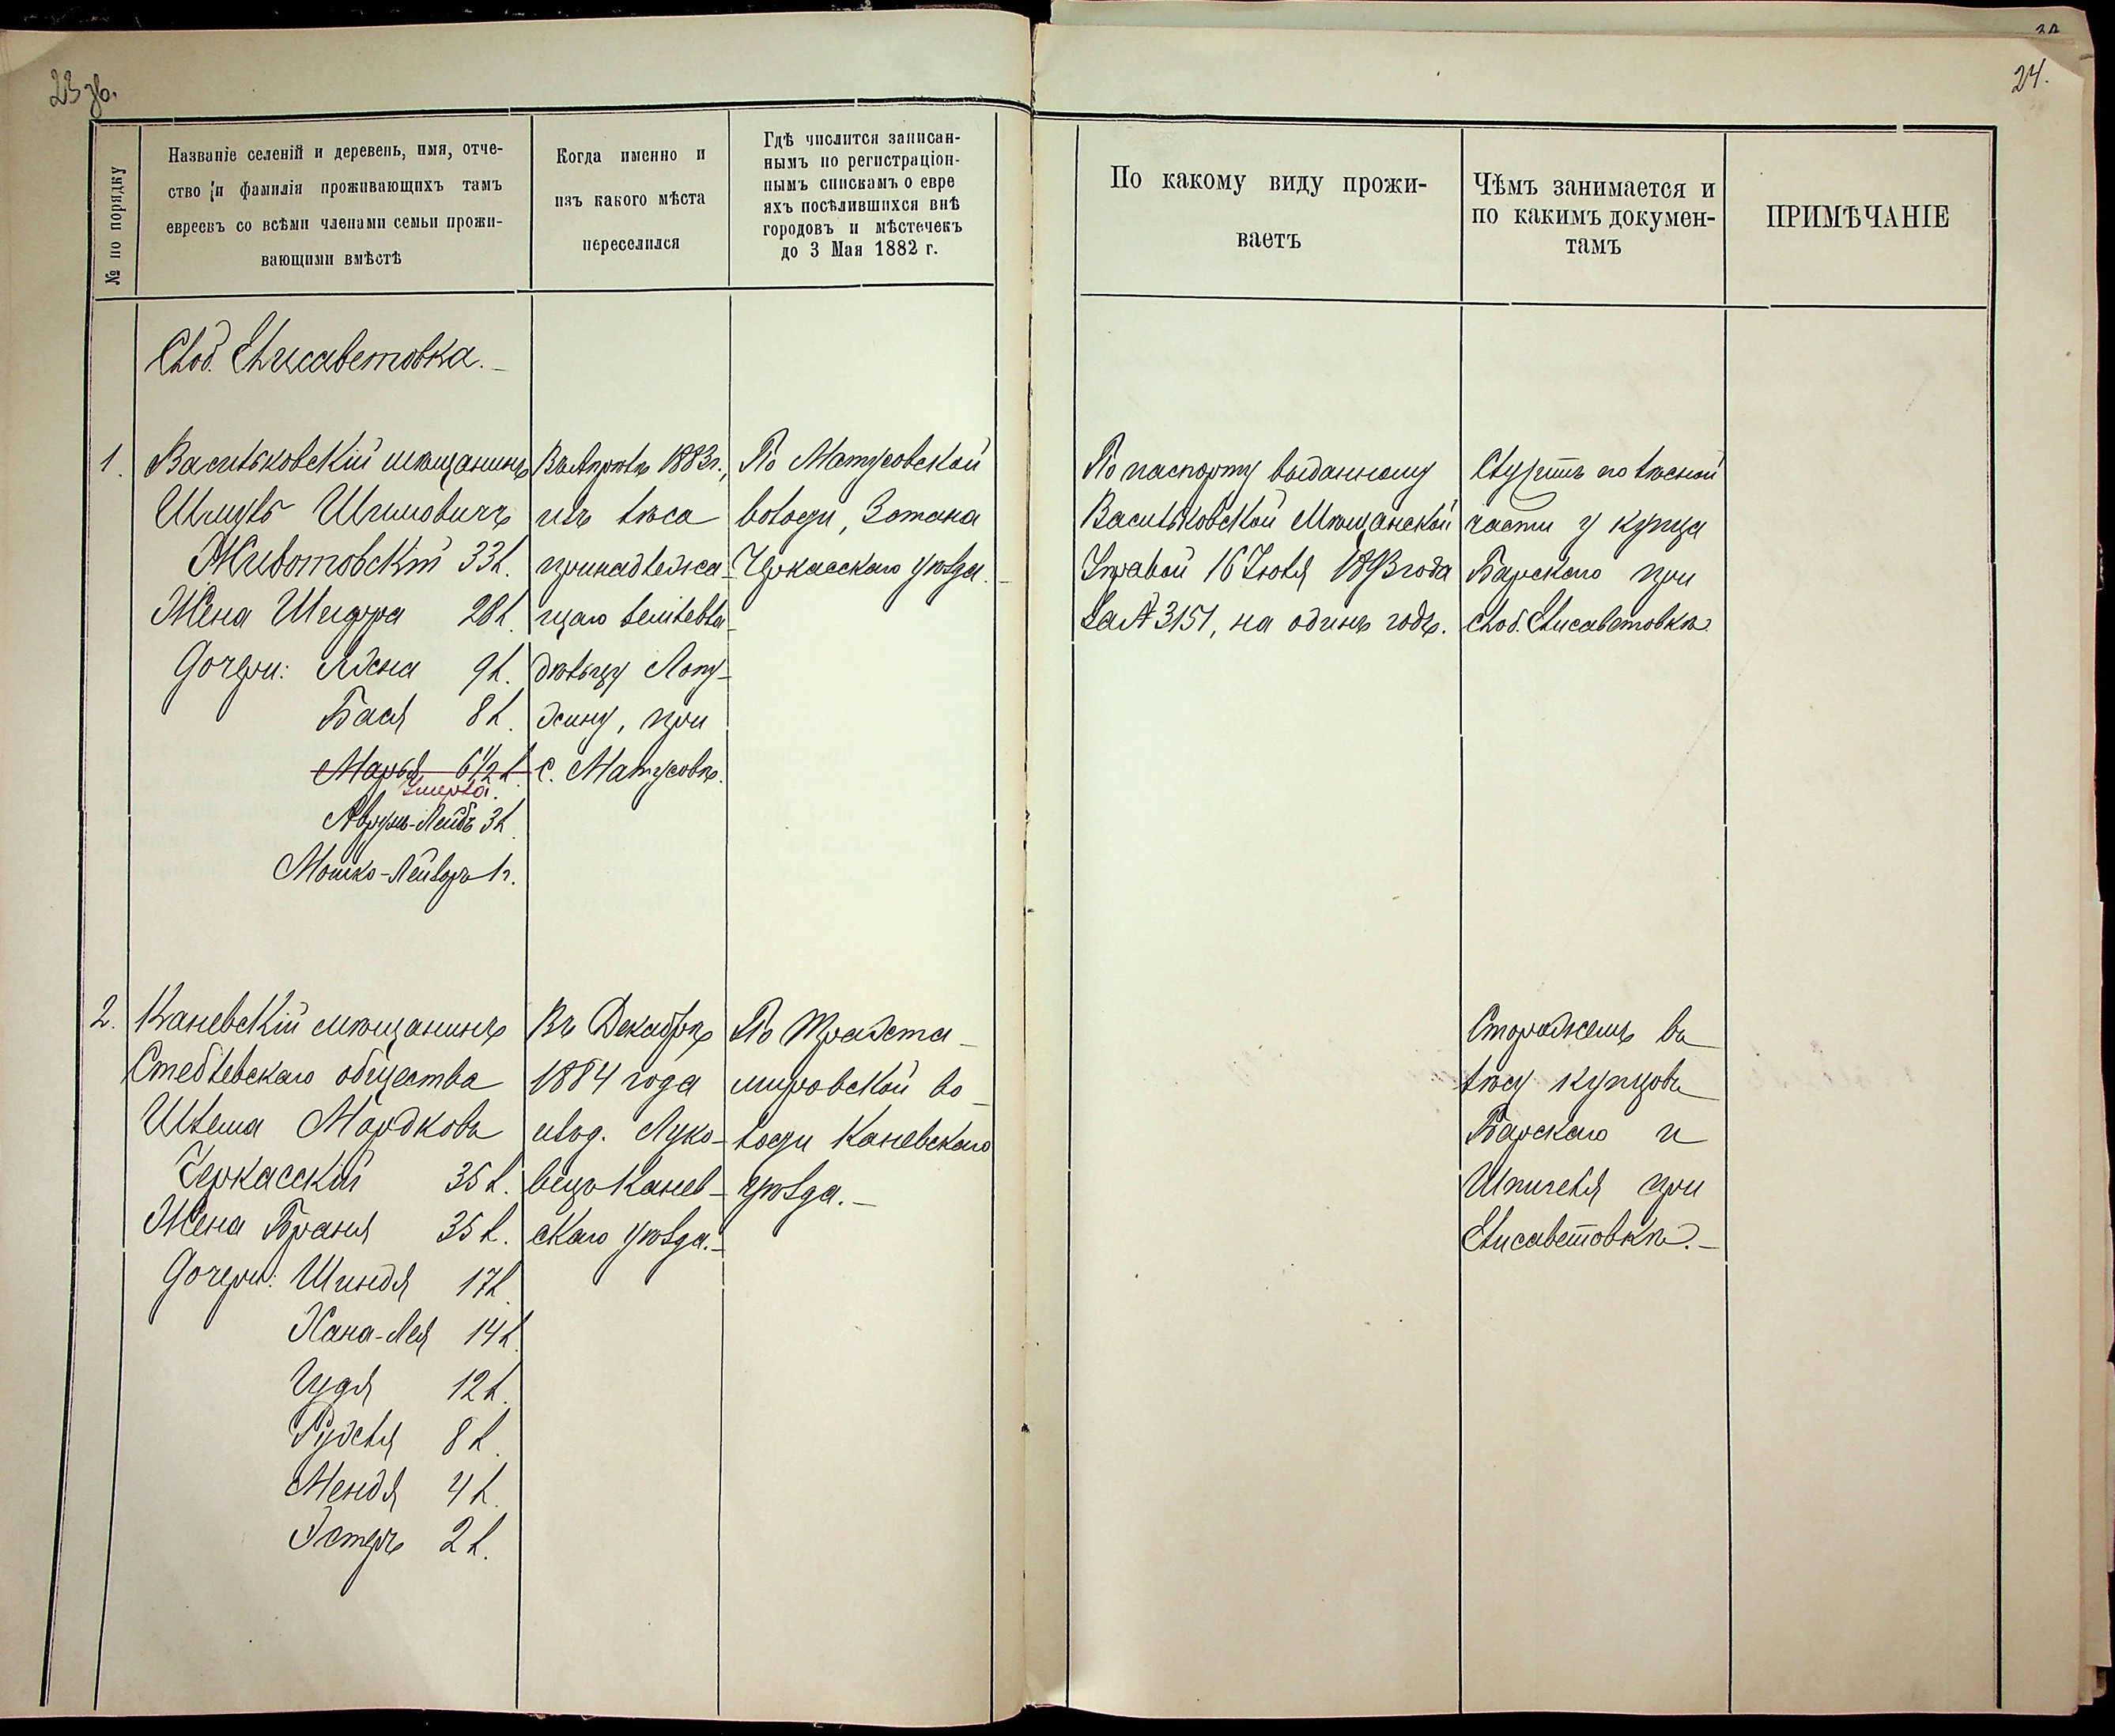 23 об.
24.
№ по порядку
Названіе селеній и деревень, имя, отче-
ство и фамилія проживающихъ тамъ
евреевъ со всѣми членами семьи прожи-
вающими вмѣстѣ
Когда именно и
изъ какого мѣста
переселился
Гдѣ числится записан-
нымъ по регистраціон-
нымъ спискамъ о евре
яхъ поселившихся внѣ
городовъ и мѣстечекъ
до 3 Мая 1882 г.
По какому виду прожи-
ваетъ
Чѣмъ занимается и
по какимъ докумен-
тамъ
ПРИМѢЧАНІЕ
Слоб. Елисаветовка.
1.
Васильковскій мѣщанинъ
Шмуль Шимовичъ
Животовскій 33 л.
Жена Шифра 28 л.
Дочери: 9 л.
Бася 8 л.
Марья 6 1/2 л.
Умерла.
Аврумъ-Лейбъ 3 л.
Мошко-Лейзоръ 1 г.
Въ Апрѣлѣ 1883 г.,
изъ лѣса
принадлежа-
щаго землевла-
дѣльцу Лопу-
хину, при
с. Матусовѣ.
По Матусовской
волости, Звенигор
Черкасскаго уѣзда.
По паспорту выданному
Васильковской Мѣщанской
Управой 16 Іюля 1893 года
За № 3151, на одинъ годъ.
Служитъ по лѣсной
части у купца
Барского при
слоб. Елисаветовкѣ
2.
Каневскій мѣщанинъ
Стеблевскаго общества
Шлема Мордковъ
Черкасскій 35 л.
Жена Браня 35 л.
Дочери: Шиндля 17 л.
Хана-Лея 14 л.
Гудя 12 л.
Рухля 8 л.
Мендля 4 л.
Эстеръ 2 л.
Въ Декабрѣ
1884 года
изъ д. Луко-
вецъ Канев-
скаго уѣзда.-
По Трахте-
мировской во-
лости Каневскаго
уѣзда.-
Сторожемъ въ
лѣсу купцовъ
Барскаго и
при
Елисаветовкѣ.-